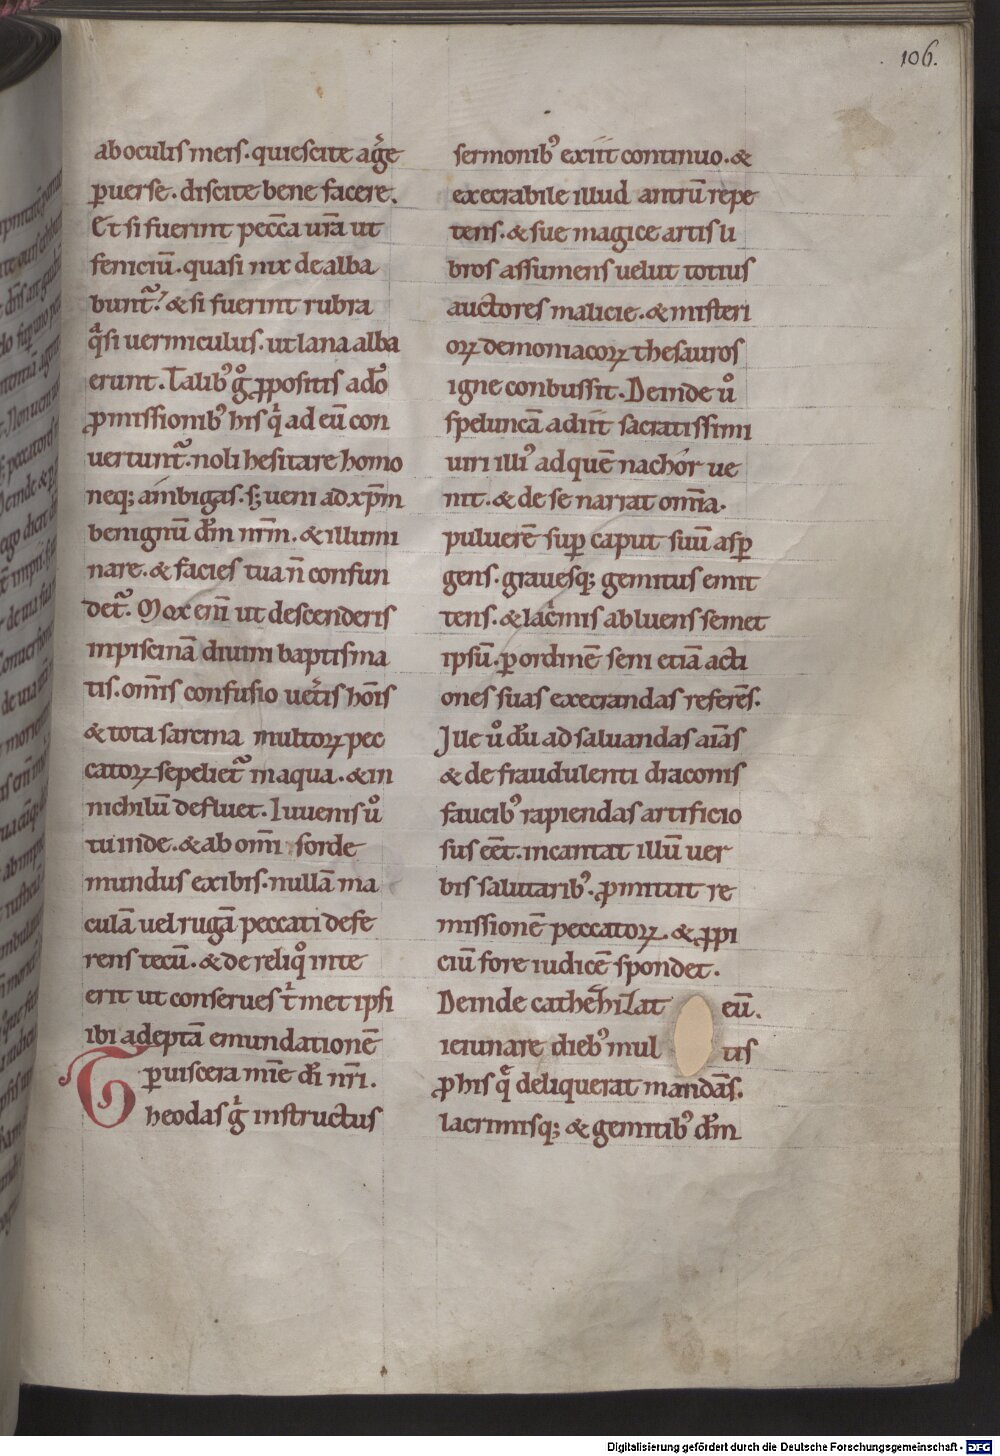 106.
ab oculis meis. quiescite aḡe
ꝑuerse. discite bene facere.
Et si fuerint pecc̄a ur̄a ut
feniciū. quasi nix dealba
bunt᷑. & si fuerint rubra
qͣsi uermiculus. ut lana alba
erunt. Talibꝰ gͦ ꝓpositis a dō
ꝓmissionibꝰ his qͥ ad eū con
uertunt᷑. noli hesitare homo
neq; ambigas. s; ueni ad xp̄m
benignū dm̄ nr̄m. & illumi
nare. & facies tua n̄ confun
det᷑. Mox eni̅ ut descenderis
in piscinā diuini baptisma
tis. om̄is confusio uet̄is hoi̅s
& tota sarcina multoꝝ pec
catoꝝ sepeliet᷑ in aqua. & in
nichilū defluet. Iuuenis uͦ
tu inde. & ab omi̅ sorde
mundus exibis. nullā ma
culā uel rugā peccati defe
rens tecū. & de reliqͦ in te
erit ut conserues t̄ met ipsi
ibi adeptā emundationē
ꝑ uiscera mi̅e di̅ nr̄i.
Theodas gͥ instructus
sermonibꝰ exiit continuo. &
execrabile illud antrū repe
tens. & sue magice artis li
bros assumens uelut totius
auctores malicie. & misteri
oꝝ demoniacoꝝ thesauros
igne conbussit. Deinde uͦ
speluncā adiit sacratissimi
uiri illiꝰ ad quē nachor ue
nit. & de se narrat omi̅a.
puluerē suꝑ caput suū asꝑ
gens. grauesq; gemitus emit
tens. & lac̄mis abluens semet
ipsū. ꝑ ordinē seni etiā acti
ones suas execrandas referēs.
Iue uͦ du̅ ad saluandas aiā̅s
& de fraudulenti draconis
faucibꝰ rapiendas artificio
sus eēt. incantat illū uer
bis salutaribꝰ. ꝓmittit re
missionē peccatoꝝ. & ꝓpi
ciū fore iudicē spondet.
Deinde cathehizat eū.
ieiunare diebꝰ mul tis
ꝓ his qͤ deliquerat mandās.
lacrimisq; & gemitibꝰ dm̄
Digitalisierung gefördert durch die Deutsche Forschungsgemeinschaft - DFG